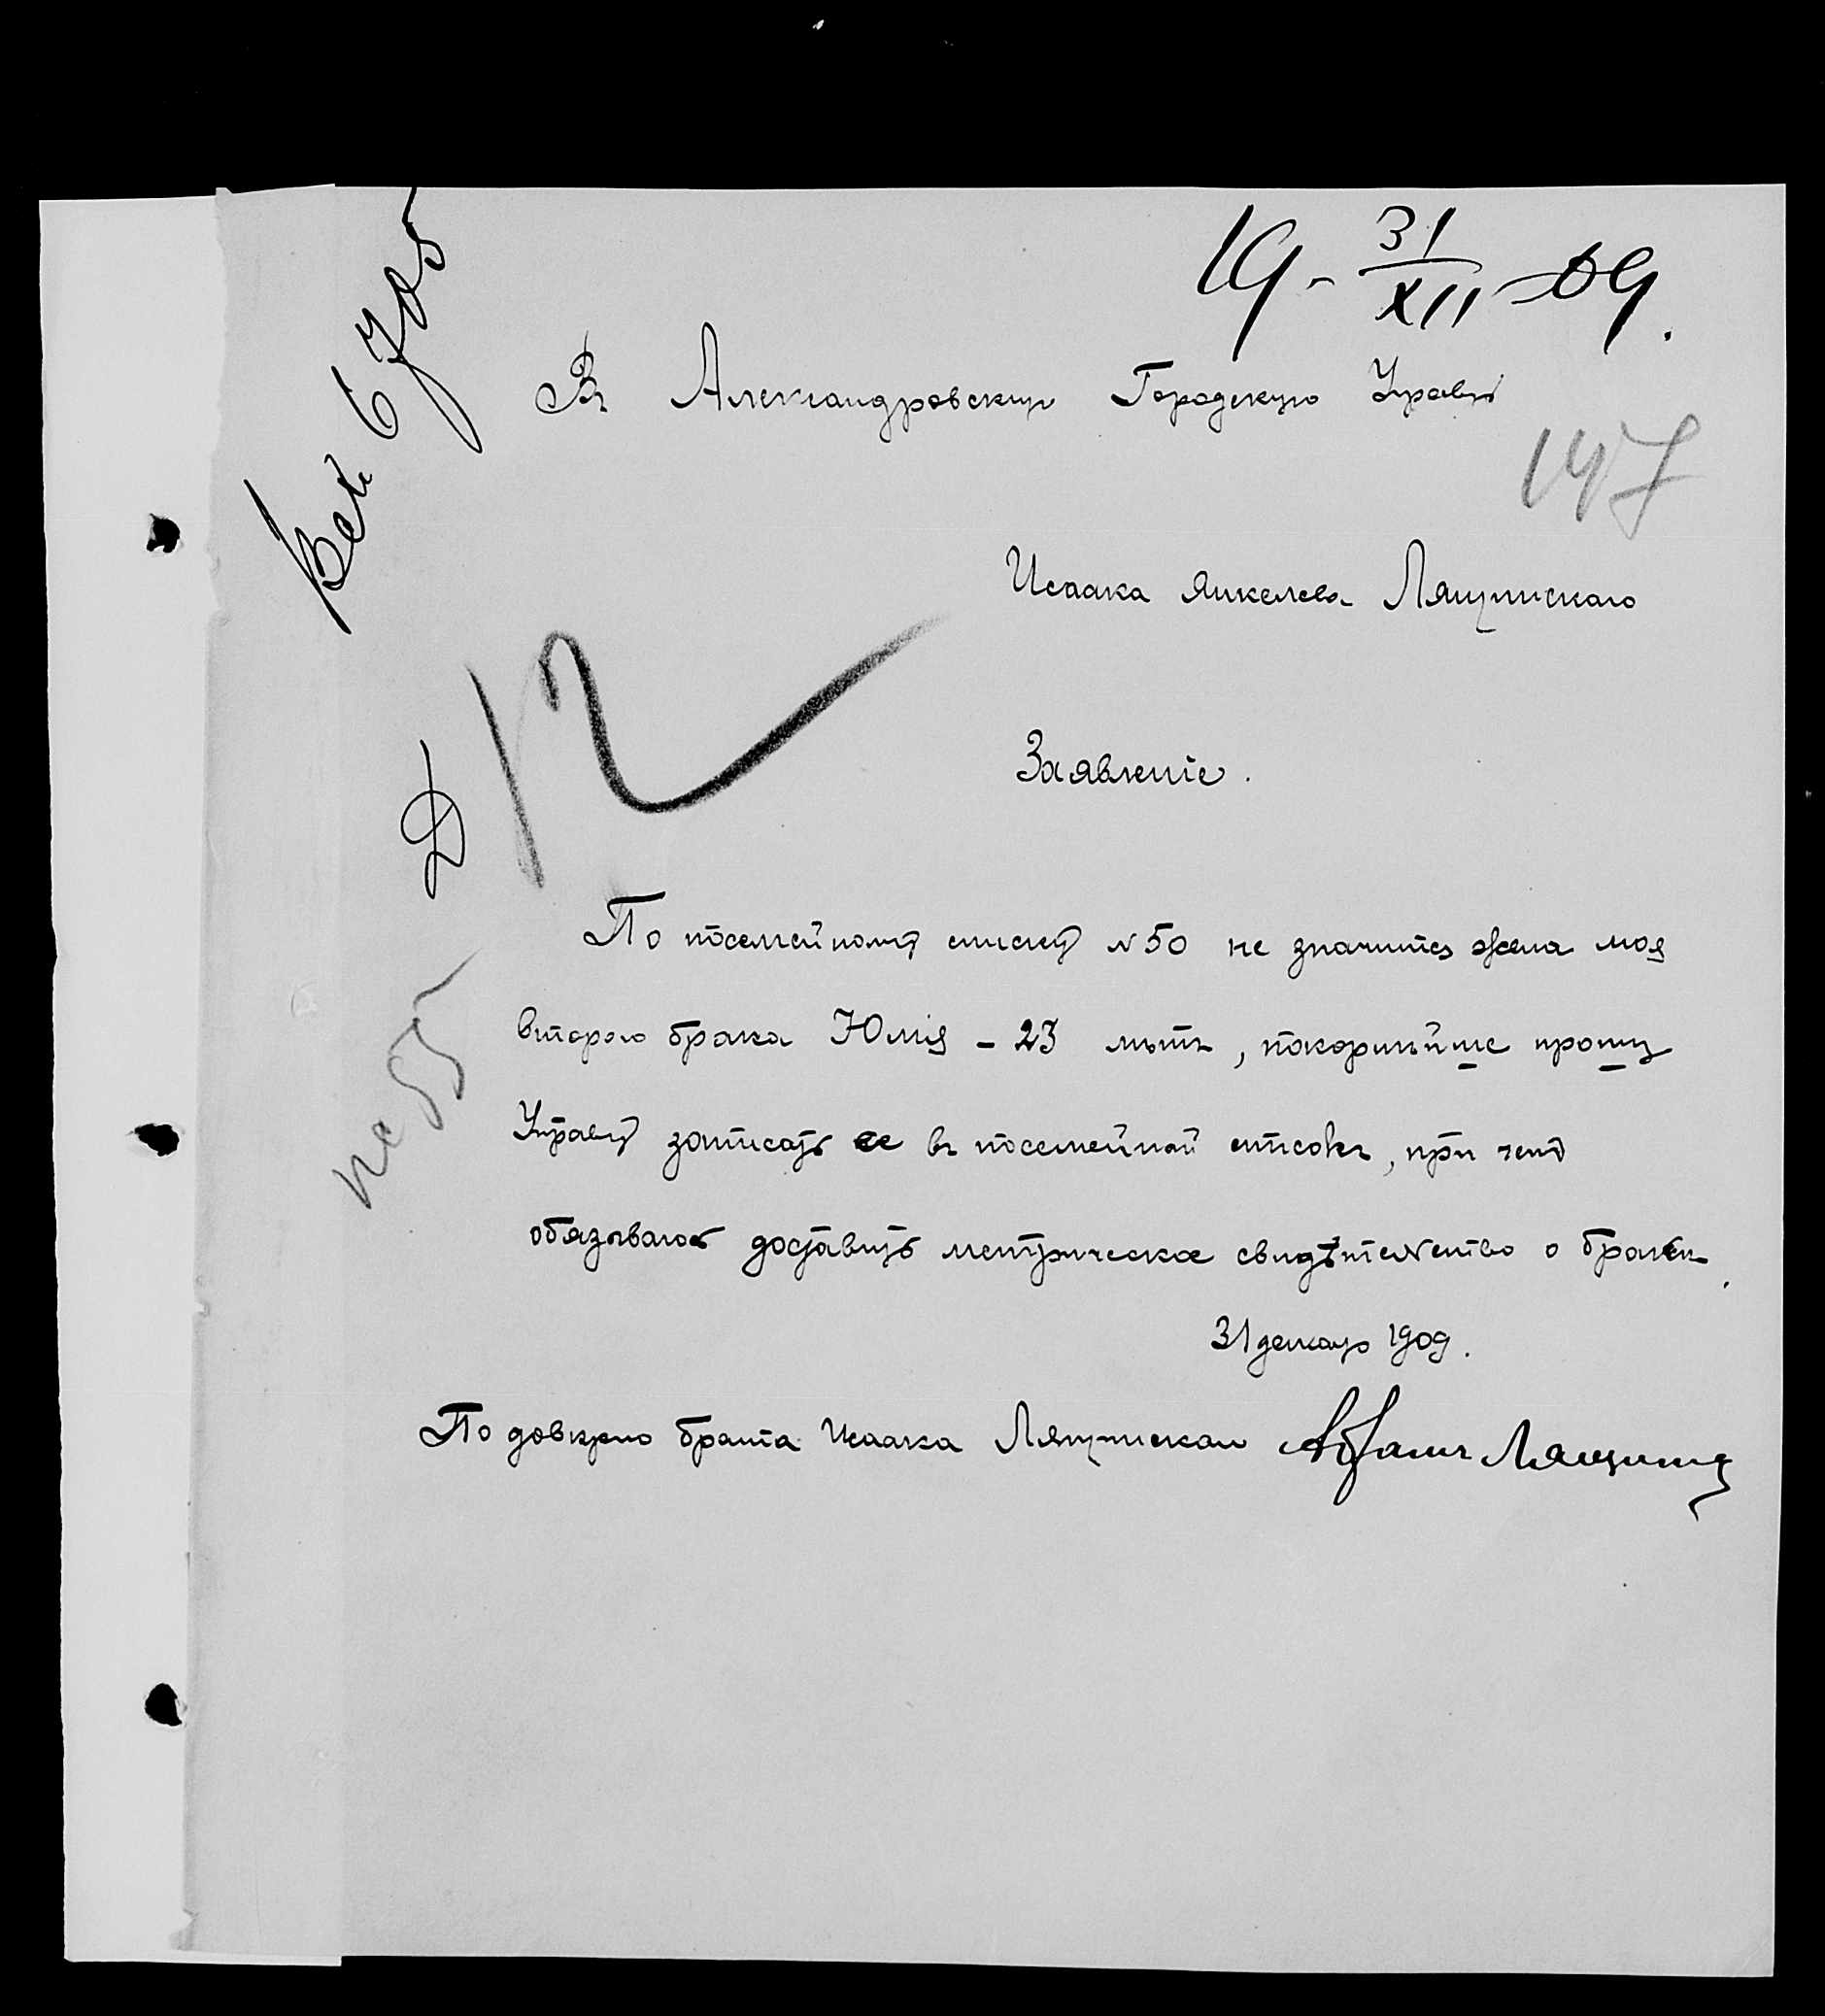 19 - 31/XII - 09.
Въ Александровскую Городскую Управу
147
Исаака Янкелева
Заявленіе.
12
По посемейному списку № 50 не значится жена моя
второго брака Юлія - 23 лѣтъ, покорнѣйше прошу
Управу записать ее въ посемейный списокъ, при чемъ
обязываюсь доставить метрическое свидѣтельство о бракѣ.
31 декабр 1909.
По довѣрію брата Исаака Абрамъ
Вх. 6705
Д
пс 55